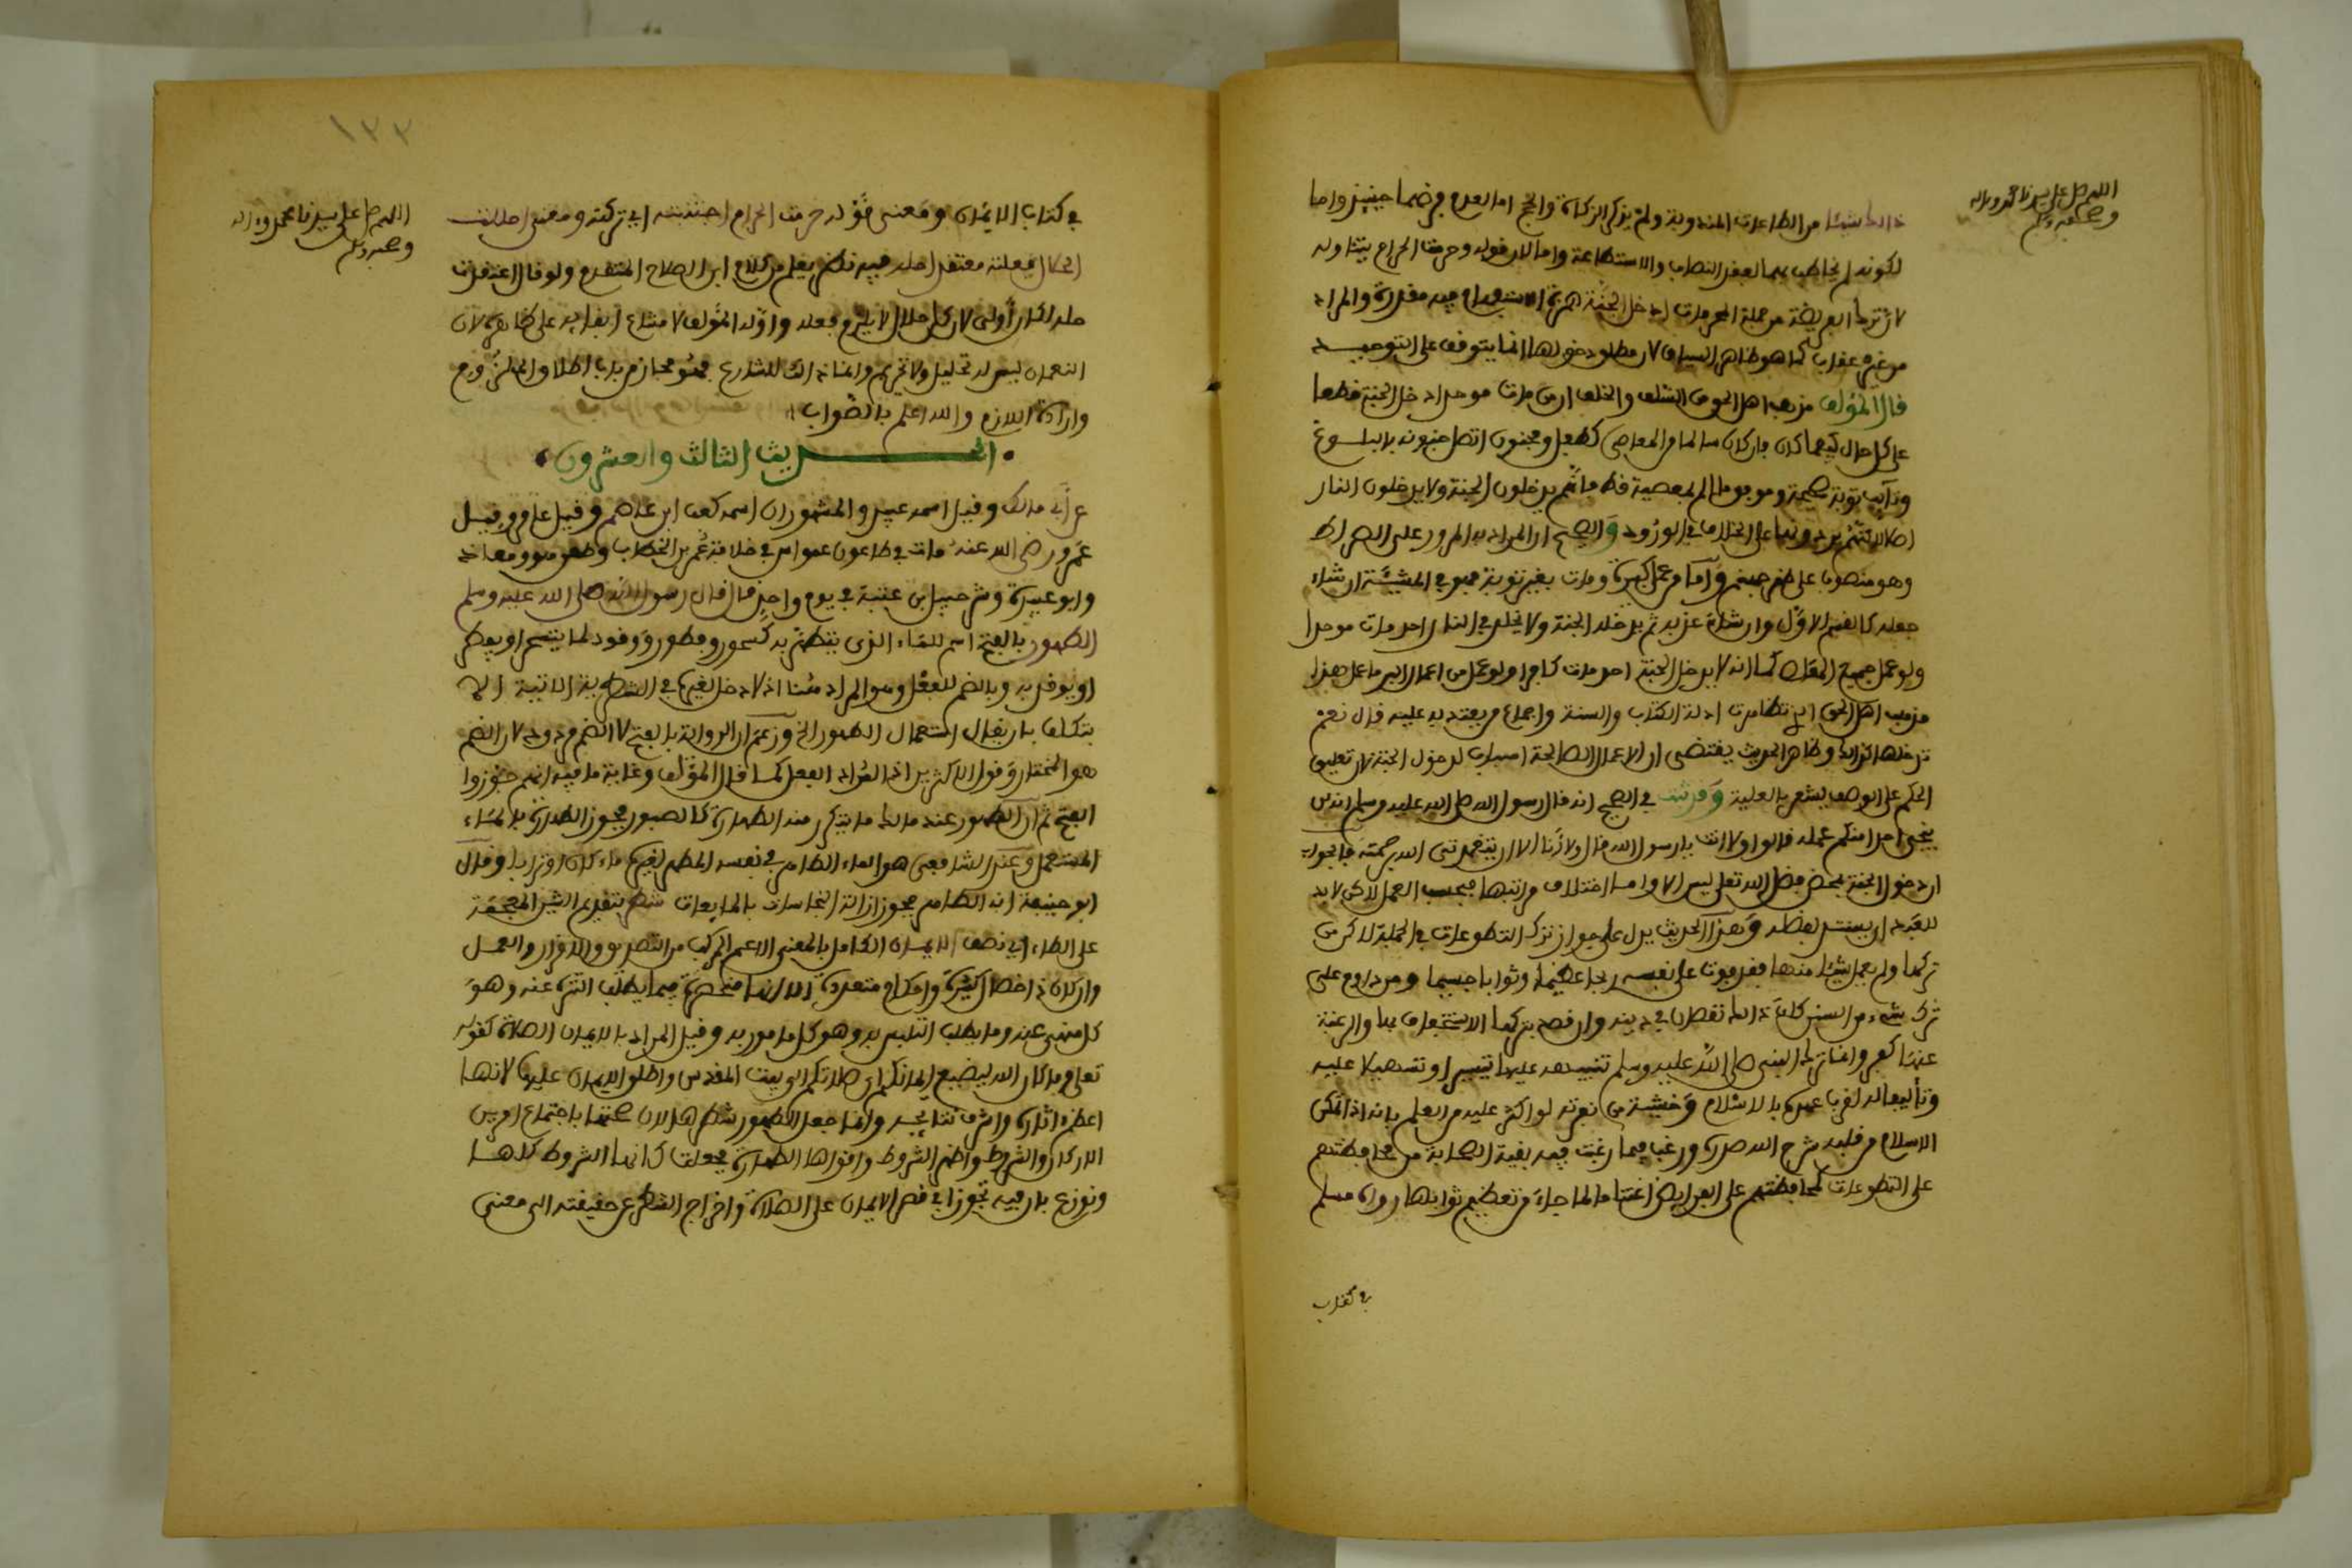 اللهم صل على سيدنا محمد وءاله
وصحبه وسلم
ذالك شيئا من الطاعات المندوبة ولم يذكر الزكاة والحج اما لعدم فرضهما حينيذ واما
لكونه لم يخاطب بهما لفقد النصاب والاستطاعة واما لان قوله وحرمت الحرام يتناوله
لان ترك الفريضة من جملة المحرمات ادخل الجنة همزة الاستفهام فيه مقدرة والمراد
من غير عقاب كما هو ظاهر السياق لان مطلق دخولها انما يتوقف على التوحيد
قال المؤلف مذهب اهل الحق من السلف والخلف ان من مات موحدا دخل الجنة قطعا
على كل حال كيفما كان فان كان سالما من المعاصي كطفل ومجنون اتصل جنونه بالبلوغ
وتآيب توبة صحيحة وموفق ما الم بمعصية قط فانهم يدخلون الجنة ولا يدخلون النار
اصلا لكنهم يردونها على الخلاف في الورود والصحيح ان المراد به المرور على الصراط
وهو منصوب على ظهر جهنم واما من عمل كبيرة ومات بغير توبة فهو في المشيئة ان شاء
جعله كالقسم الاول وان شاء عذبه ثم يدخله الجنة ولا يخلد في النار احد مات موحدا
ولو عمل جميع المعاصي كما انه لا يدخل الجنة احد مات كافرا ولو عمل من اعمال البر ما عمل هذا
مذهب اهل الحق الذي تظاهرت ادلة الكتاب والسنة واجماع من يعتد به عليه قال نعم
تدخلها كذالك وظاهر الحديث يقتضي ان الاعمال الصالحة اسباب لدخول الجنة لان تعليق
الحكم على الوصف يشعر بالعلية وقد ثبت في الصحيح انه قال رسول الله صلى الله عليه وسلم انه لن
ينجي احدا منكم عمله قالوا ولا انت يا رسول الله قال ولا أنا الا ان يتغمدني الله برحمته فالجواب
ان دخول الجنة بمحض فضل الله تعلى ليس الا واما اختلاف مراتبها فبحسب العمل لاكن لا بد
للعبد ان يستند لفضله وهذا الحديث يدل على جواز ترك التطوعات في الجملة لاكن من
تركها ولم يعمل شيئا منها فقد فوت على نفسه ربحا عظيما وثوابا جسيما ومن داوم على
ترك شيء من السنن كان ذالك نقصا في دينه وان قصد بتركها الاستخفاف بها والرغبة
عنها كفر وانما ترك النبي صلى الله عليه وسلم تنبيهه عليها تيسيرا وتسهيلا عليه
وتأليفا له لقرب عهده بالاسلام وخشية من نفرته لو اكثر عليه مع العلم بانه اذا تمكن
الاسلام من قلبه شرح الله صدره ورغب فيما رغبت فيه بقية الصحابة من محافظتهم
على التطوعات كمحافظتهم على الفرايض اغتناما لما جاء من تعظيم ثوابها رواه مسلم
في كتاب
١٣٣
اللهم صل على سيدنا محمد وءاله
وصحبه وسلم
في كتاب الايمان ومعنى قوله حرمت الحرام اجتنبته اي تركته ومعنى احللت
الحلال فعلته معتقدا حله فيه نظر يعلم من كلام ابن الصلاح المتقدم ولو قال اعتقدت
حله لكان أولى لان كل حلال لا يلزم فعله واوله المؤلف لامتناع ابقايه على ظاهره لان
النعمان ليس له تحليل ولا تحريم وانما ذالك للشارع فهو مجاز من باب اطلاق الملزوم
وارادة اللازم والله اعلم بالصواب
الحديث الثالث والعشرون
عن أبي مالك وقيل اسمه عبيد والمشهور ان اسمه كعب ابن عاصم وقيل عامر وقيل
عمرو رضي الله عنه مات في طاعون عمواس في خلافة عمر بن الخطاب وطعن هو ومعاذ
وابو عبيدة وشرحبيل بن عتبة في يوم واحد قال قال رسول الله صلى الله عليه وسلم
الطهور بالفتح اسم للماء الذي يتطهر به كسحور وفطور ووقود لما يتسحر او يفطر
او يوقد به وبالضم للفعل وهو المراد هنا اذ لا دخل لغيره في الشطرية الاتية الا
بتكلف بان يقال استعمال الطهور الخ وزعم ان الرواية بالفتح لا الضم مردود لان الضم
هو المختار وقول الاكثرين اذ المراد الفعل كما قال المؤلف وغاية ما فيه انهم جوزوا
الفتح ثم ان الطهور عند مالك ما يتكرر منه الطهارة كالصبور فيجوز الطهارة بالماء
المستعمل وعند الشافعي هو الماء الطاهر في نفسه المطهر لغيره ماء كان او ترابا وقال
ابو حنيفة انه الطاهر فيجوز ازالة النجاسات بالمايعات شطر بتقديم الشين المعجمة
على الطاء اي نصف الايمان الكامل بالمعنى الاعم المركب من التصديق والاقرار والعمل
وان كان ذا خصال كثيرة واحكام متعددة الا انها منحصرة فيما يطلب التنزه عنه وهو
كل منهي عنه وما يطلب التلبس به وهو كل مامور به وقيل المراد بالايمان الصلاة كقوله
تعلى وما كان الله ليضيع ايمانكم اي صلاتكم الى بيت المقدس واطلق الايمان عليها لانها
اعظم اثاره واشرف نتايجه وانما جعل الطهور شطرها لان صحتها باجتماع امرين
الاركان والشروط واظهر الشروط واقواها الطهارة فجعلت كانها الشروط كلها
ونوزع بان فيه تجوزا في قصر الايمان على الصلاة واخراج الشطر عن حقيقته الى معنى